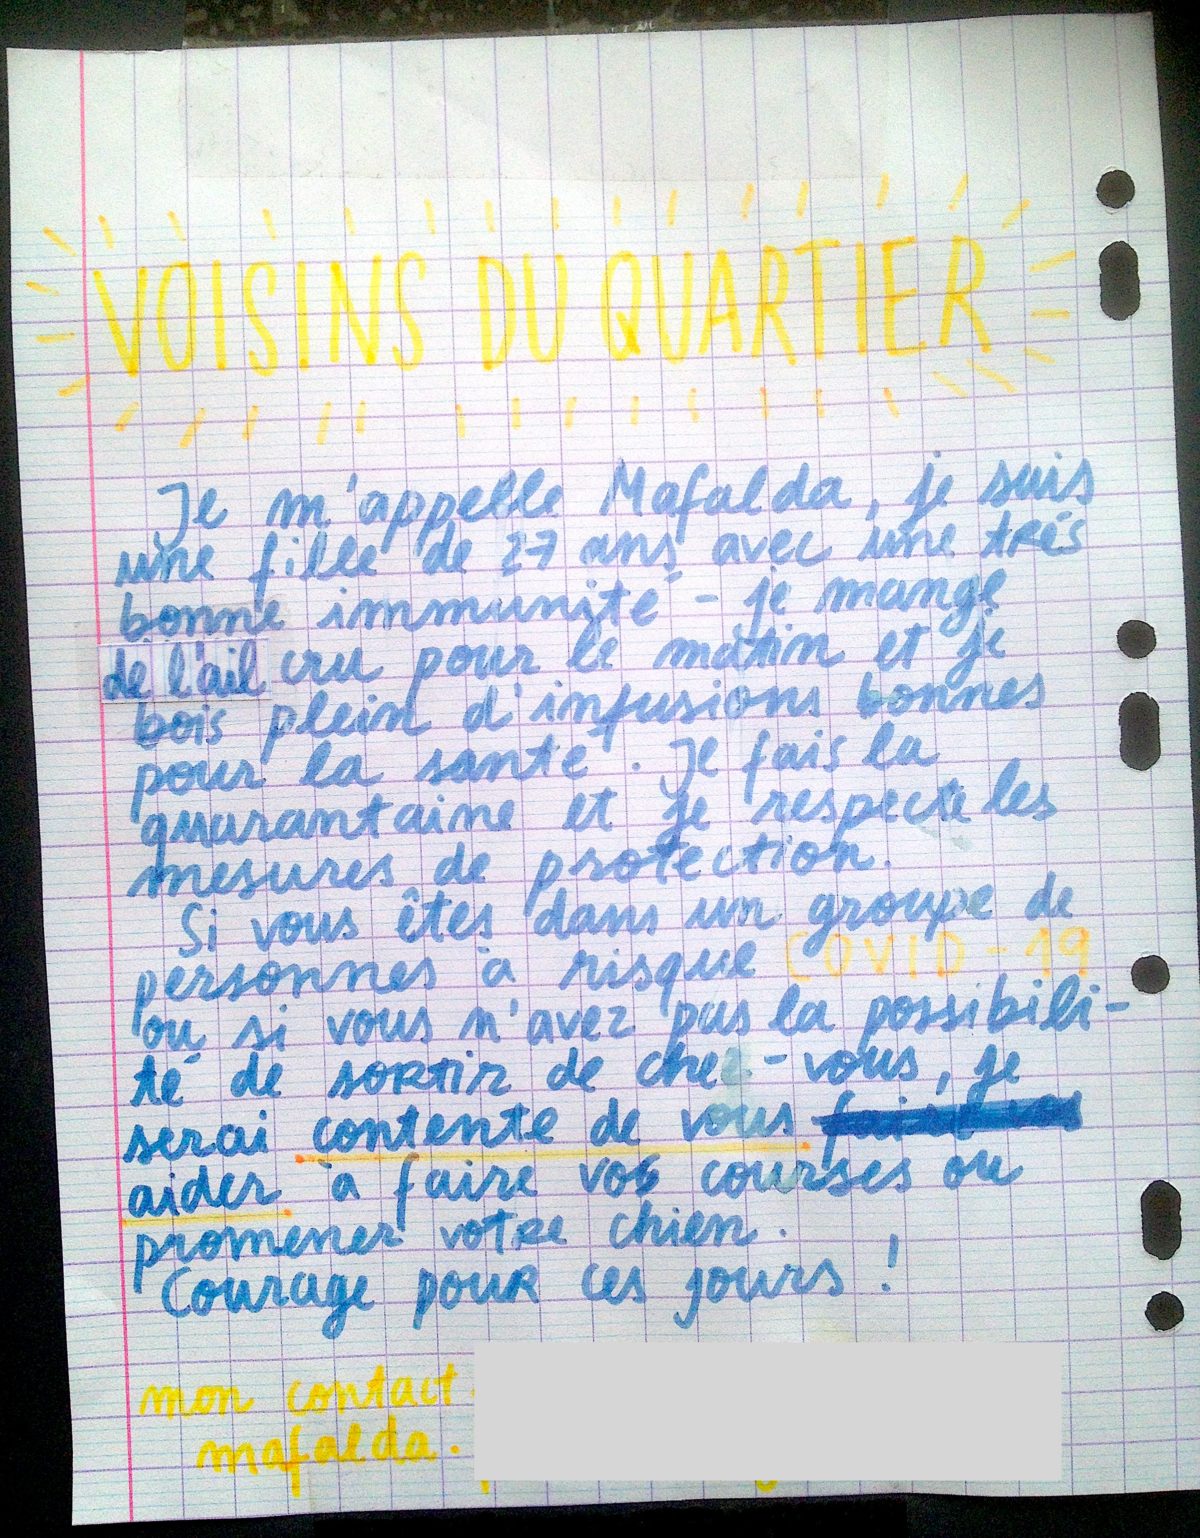 VOISINS DU QUARTIER
Je m'appelle Mafalda, je suis
une fille de 27 ans avec une trés
bonne immunité - je mange
de l'ail cru pour le matin et je
bois plein d'infusions bonnes
pour la santé. Je fais la
quarantaine et je respecte les
mesures de protection.
Si vous êtes dans un groupe de
personnes à risque COVID-19
ou si vous n'avez pas la possibili-
té de sortir de chez-vous, je
serai contente de vous
aider à faire vos courses ou
promener votre chien.
Courage pour ces jours !
mon contact
mafalda.